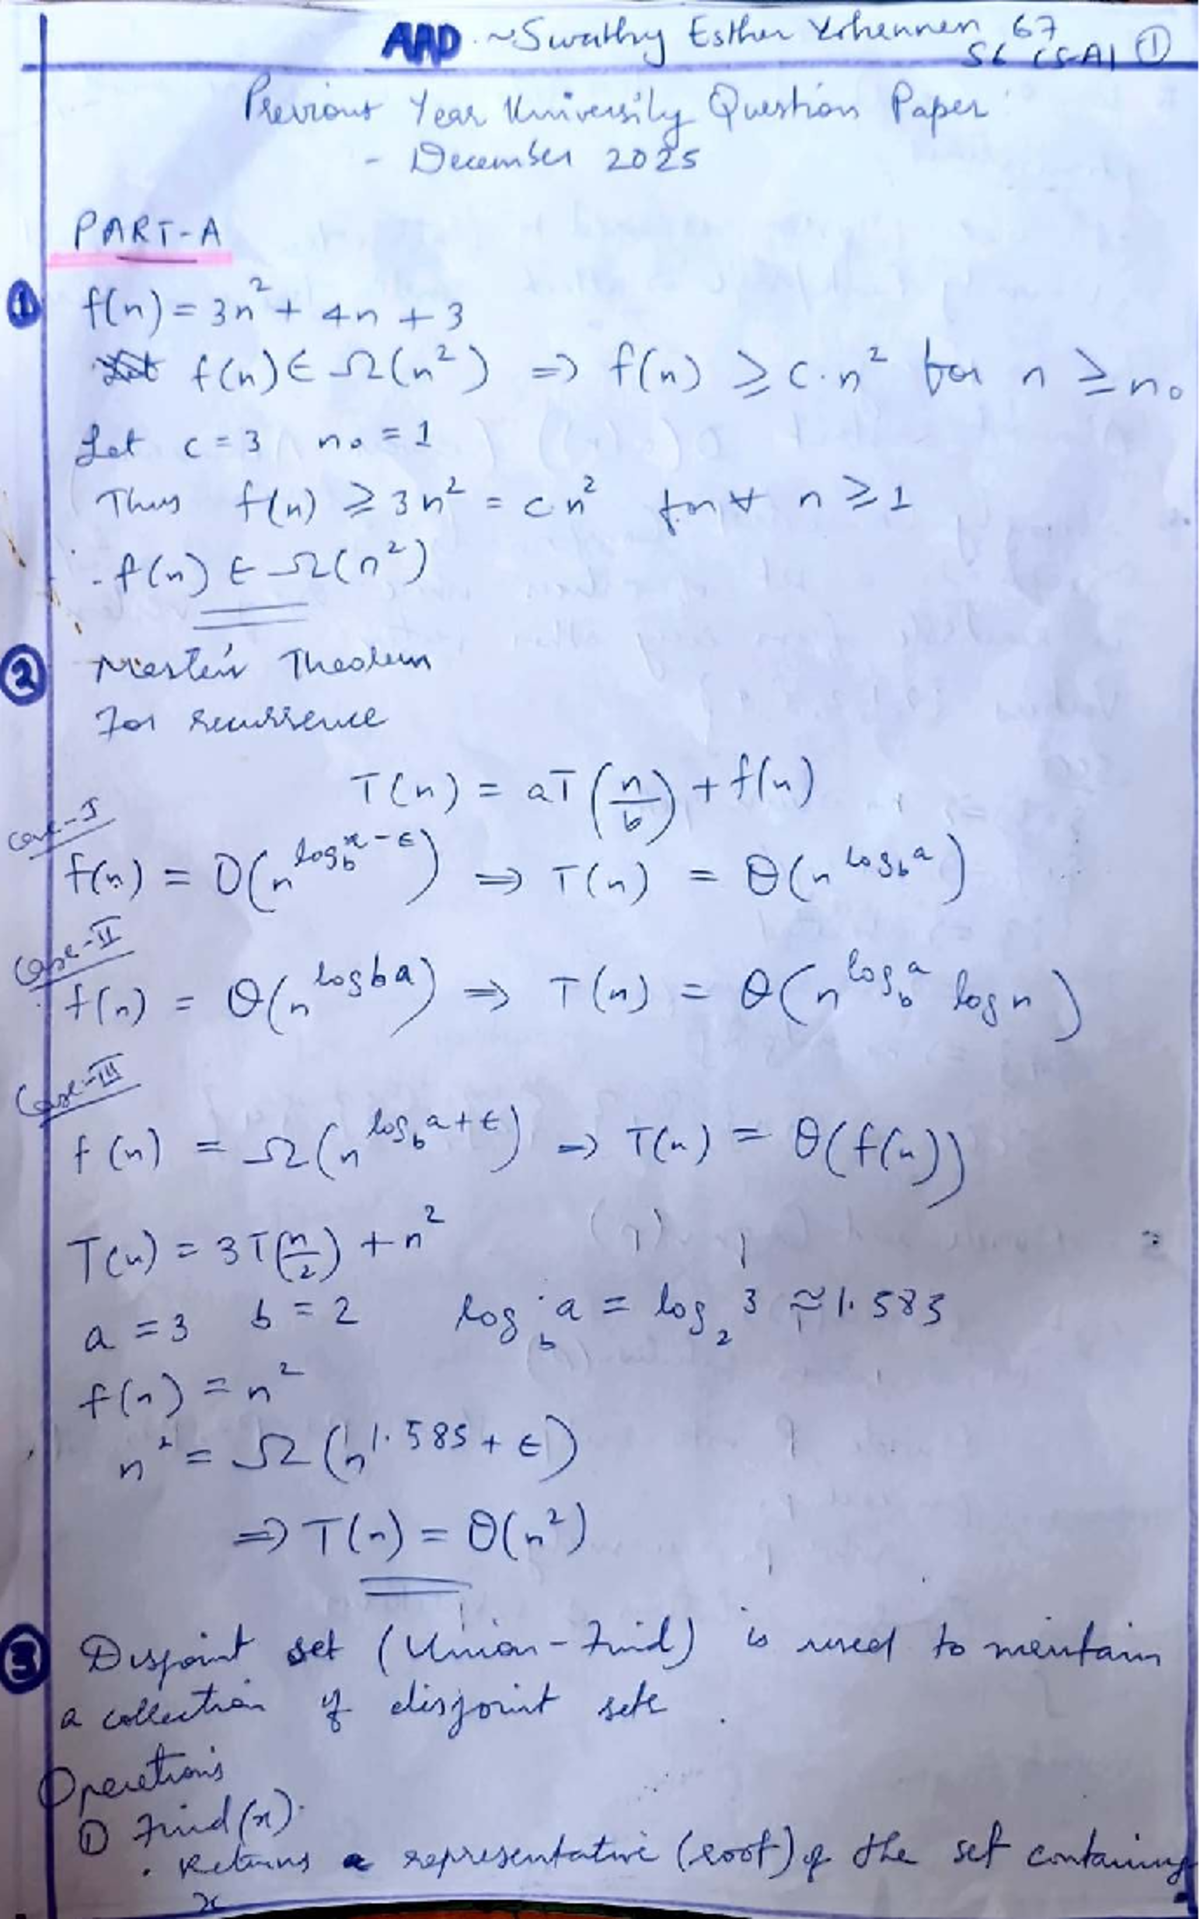 AAD ~Swathy Esther Yohannan 67
S6 CS-A ①
Previous Year University Question Paper
- December 2025
PART-A
① f(n) = 3n² + 4n + 3
f(n) ∈ Ω(n²) ⇒ f(n) ≥ c·n² for n ≥ n₀
Let c = 3 n₀ = 1
Thus f(n) ≥ 3n² = cn² for ∀ n ≥ 1
∴ f(n) ∈ Ω(n²)
② Master's Theorem
For recurrence
T(n) = aT(n/b) + f(n)
Case-I
f(n) = O(n^(log_b a - ϵ)) ⇒ T(n) = θ(n^(log_b a))
Case-II
f(n) = θ(n^(log b a)) ⇒ T(n) = θ(n^(log_b a) log n)
Case-III
f(n) = Ω(n^(log_b a + ϵ)) ⇒ T(n) = θ(f(n))
T(n) = 3T(n/2) + n²
a = 3 b = 2 log_b a = log_2 3 ≈ 1.585
f(n) = n²
n² = Ω(n^(1.585 + ϵ))
⇒ T(n) = θ(n²)
③ Disjoint set (Union-Find) is used to maintain
a collection of disjoint sets.
Operations
① Find(x)
· Returns a representative (root) of the set containing
x